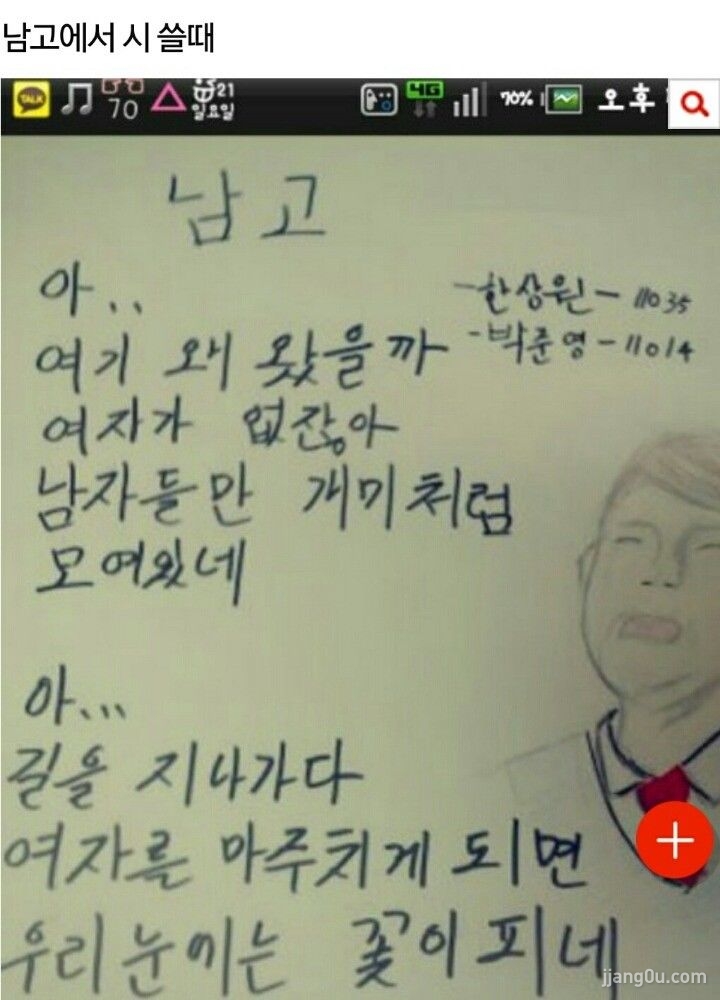 남고에서 시 쓸때
TALK 70 21 일요일 4G 70% 오후
남고
아..
-한상원- 11035
여기 왜 왔을까 -박준영-11014
여자가 없잖아
남자들만 개미처럼
모여왔네
아...
길을 지나가다
여자를 마주치게 되면
우리눈에는 꽃이피네
jjang0u.com